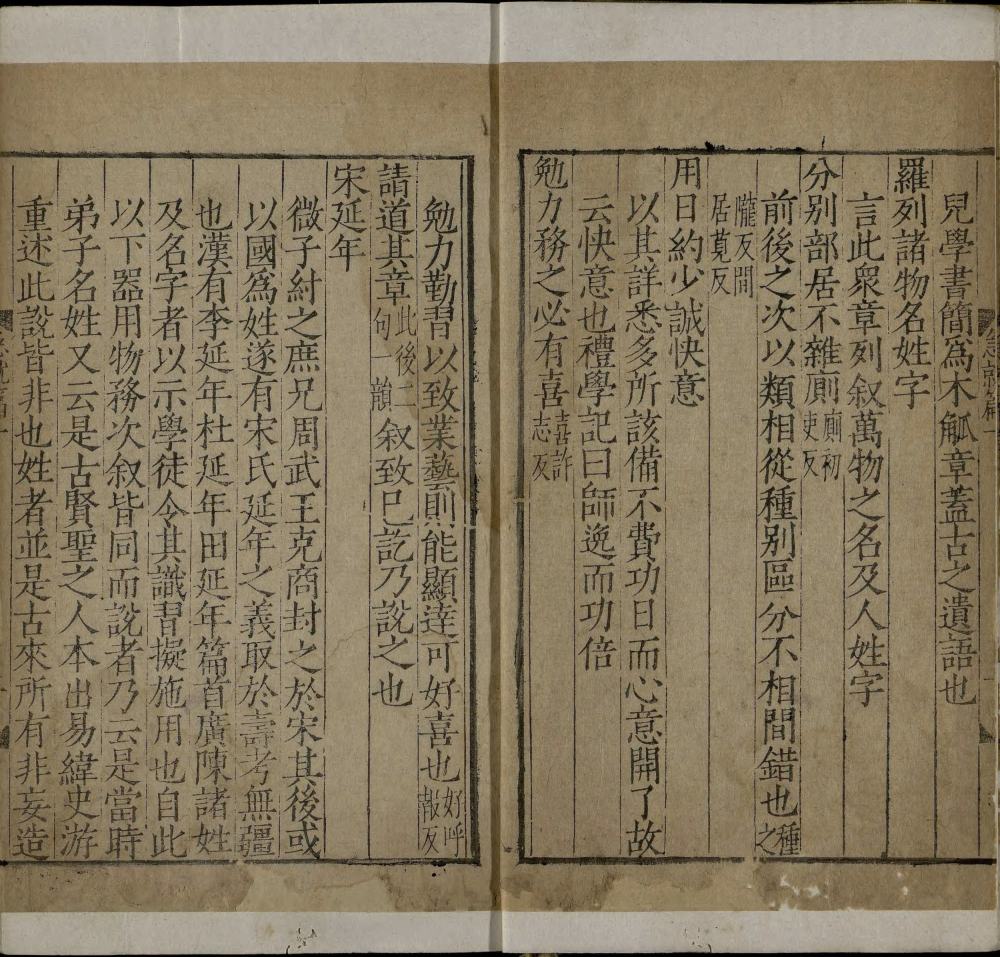 兒學書簡爲木觚章蓋古之遺語也
羅列諸物名姓字
言此衆章列叙萬物之名及人姓字
分别部居不雜廁廁初吏反
前後之次以類相從種别區分不相間錯也種之
隴反間居莧反
用日約少誠快意
以其詳悉多所該備不費功日而心意開了故
云快意也禮學記曰師逸而功倍
勉力務之必有喜喜許志反
勉力勤習以致業藝則能顯達可好喜也好呼報反
請道其章此後二句一韻叙致已訖乃說之也
宋延年
微子紂之庶兄周武王克商封之於宋其後或
以國爲姓遂有宋氏延年之義取於壽考無疆
也漢有李延年杜延年田延年篇首廣陳諸姓
及名字者以示學徒令其識習擬施用也自此
以下器用物務次叙皆同而說者乃云是當時
弟子名姓又云是古賢聖之人本出易緯史游
重述此說皆非也姓者並是古來所有非妄造